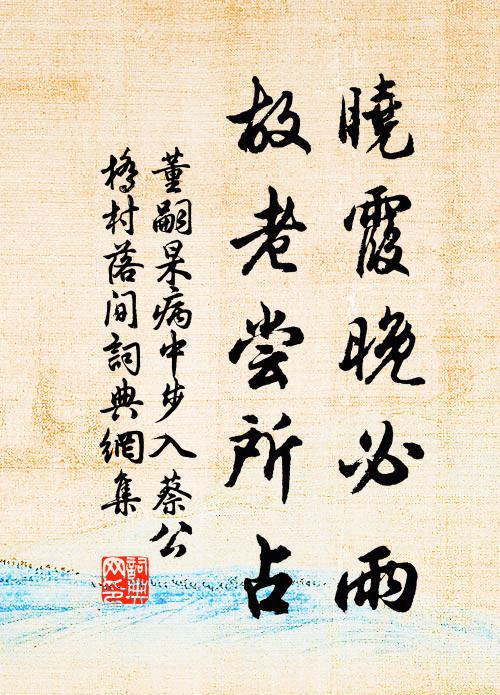 曉霞晚必雨
故老嘗所占
董嗣杲病中步入蔡公
橋村落间詞典網集
詞典
网名